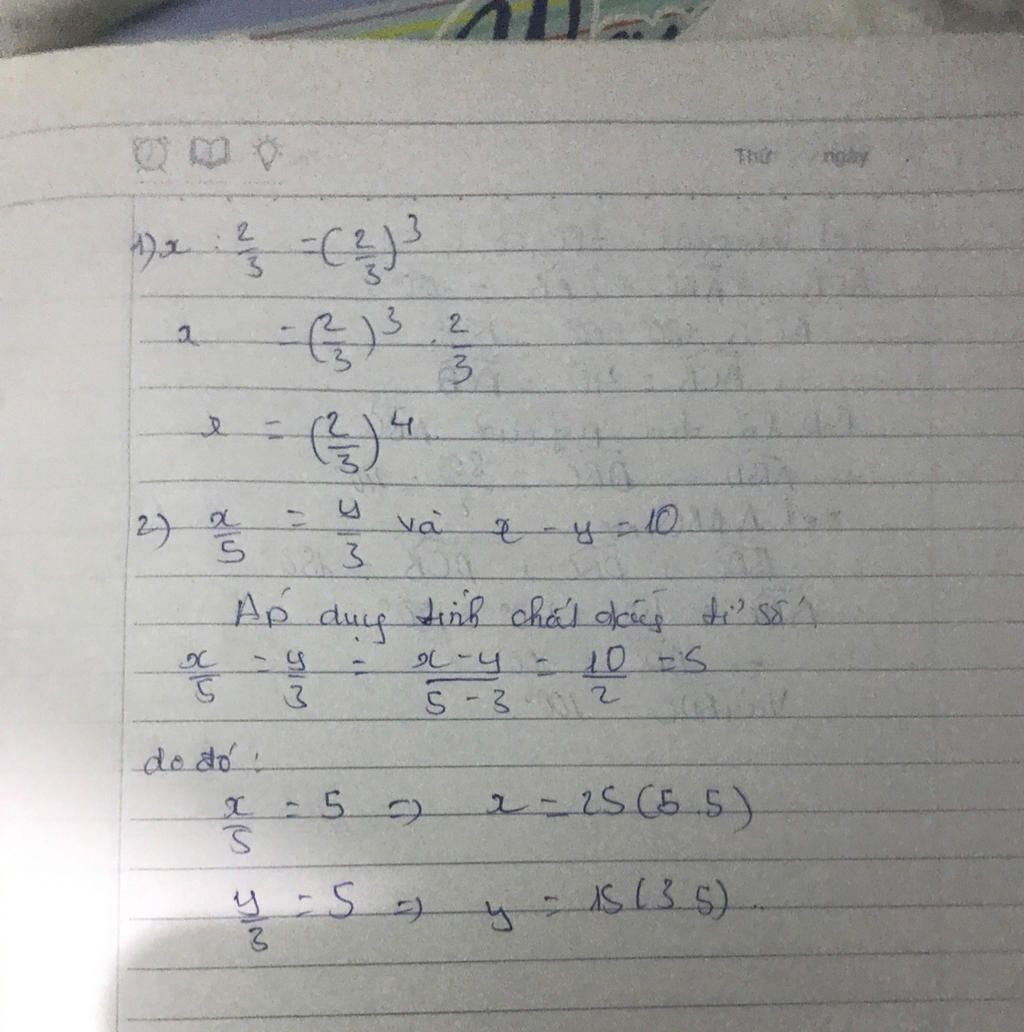 Thứ ngày
1) x : 2/3 = (2/3)^3
x = (2/3)^3 . 2/3
x = (2/3)^4
2) x/5 = y/3 và x - y = 10
Áp dụng tính chất dãy tỉ số
x/5 = y/3 = (x-y)/(5-3) = 10/2 = 5
do đó :
x/5 = 5 => x = 25 (5.5)
y/3 = 5 => y = 15 (3.5)